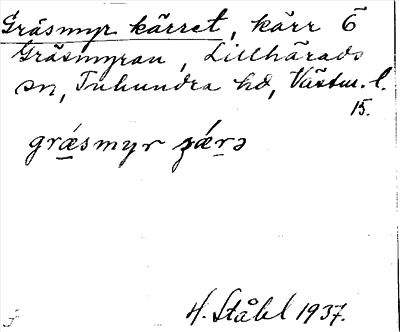 Gräsmyr kärret, kärr Ö
Gräsmyran, Lillhärads
sn, Tuhundra hd, Västm. l.
15.
græ̲smyr ʒæ̲rə
H. Ståhl 1937.